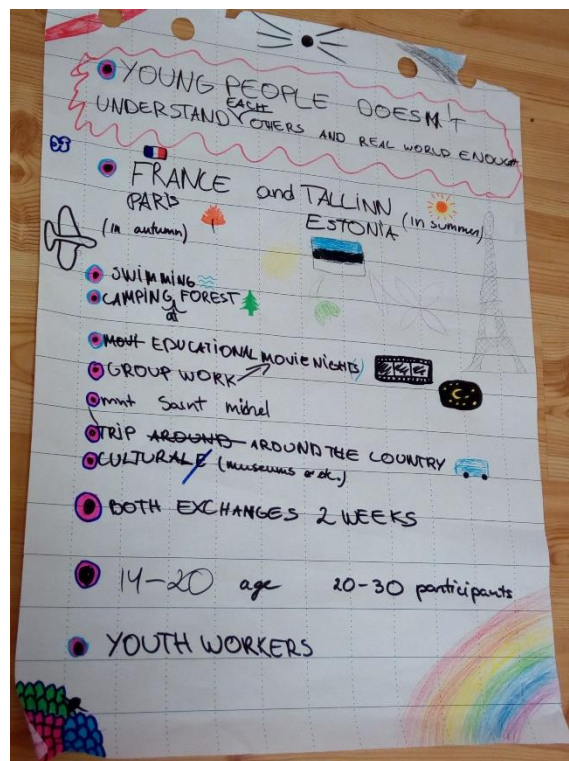 YOUNG PEOPLE DOESN'T
UNDERSTAND EACH OTHERS AND REAL WORLD ENOUGH
FRANCE and TALLINN
PARIS ESTONIA (in summer)
(in autumn)
SWIMMING
CAMPING at FOREST
EDUCATIONAL MOVIE NIGHTS
GROUP WORK
mnt Saint michel
TRIP AROUND AROUND THE COUNTRY
CULTURALE (museums etc.)
BOTH EXCHANGES 2 WEEKS
14-20 age 20-30 participants
YOUTH WORKERS